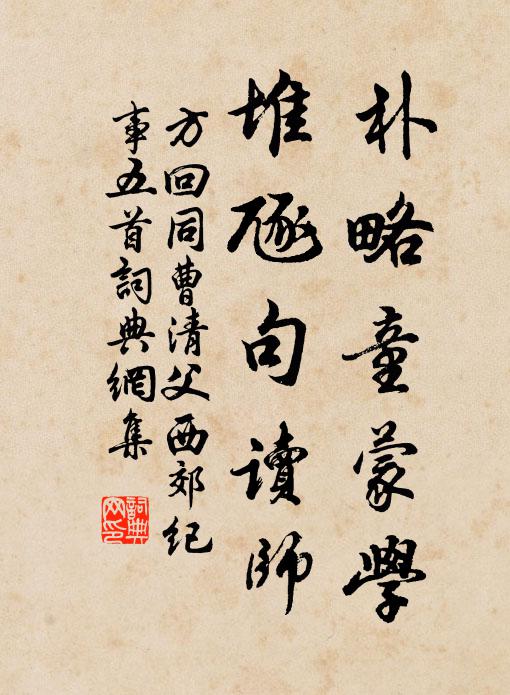 朴略童蒙學
堆豗句讀師
方回同曹清父西郊紀
事五首詞典網集
詞典
网印